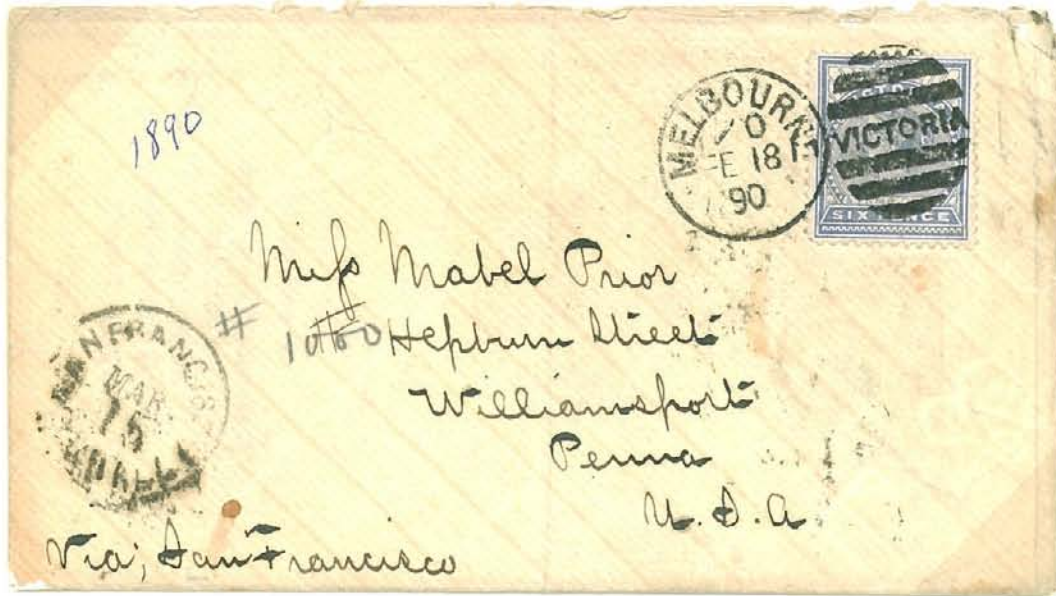 1890
MELBOURNE
FE 18
90
VICTORIA
SIX PENCE
Miss Mabel Prior
# Hepburn Street
Williamsport
Penna
U.S.A.
SAN FRANCISCO
MAR
15
Via; San Francisco